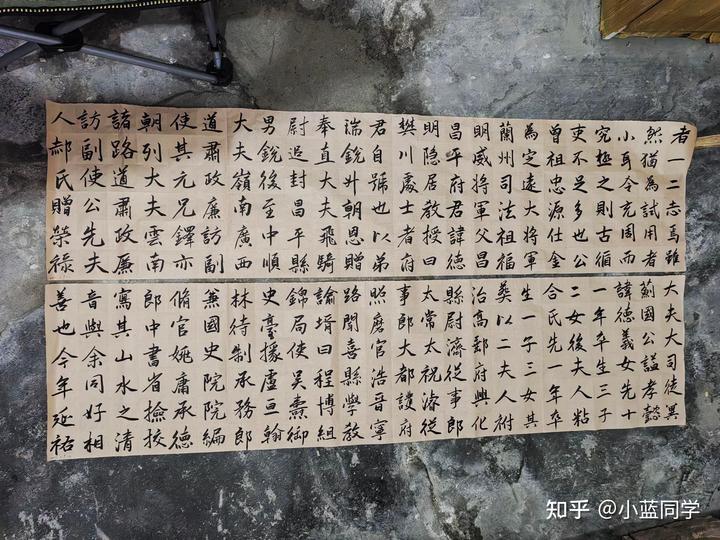 者一二志焉雖
然猶為試用者
小耳今充周而
究極之則古循
吏不足多也公
曾祖忠源仕金
為定遠大將軍
蘭州司法祖福
明威將軍父昌
昌平府君諱德
明隐居教授曰
樊川處士者府
君自號也以弟
瑞銳升朝恩贈
奉直大夫飛騎
尉追封昌平縣
男銳後至中順
大夫嶺南廣西
道肅政廉訪副
使其元兄鐸亦
朝列大夫雲南
諸路道肅政廉
訪副使公先夫
人郝氏贈榮祿
大夫大司徒冀
薊國公謚孝懿
諱德義女先十
一年卒生三子
二女後夫人粘
合氏先一年卒
生一子三女其
葬以二夫人祔
治高郵府興化
縣尉濟從事郎
太常太祝濬從
事郎大都護府
照磨官浩晉寧
路聞喜縣學教
諭壻曰程博組
錦局使吳燾御
史臺掾盧亘翰
林待制承務郎
兼國史院院編
脩官姚庸承德
郎中書省撿挍
寫其山水之清
音與余同好相
善也今年延祐
知乎 @小蓝同学